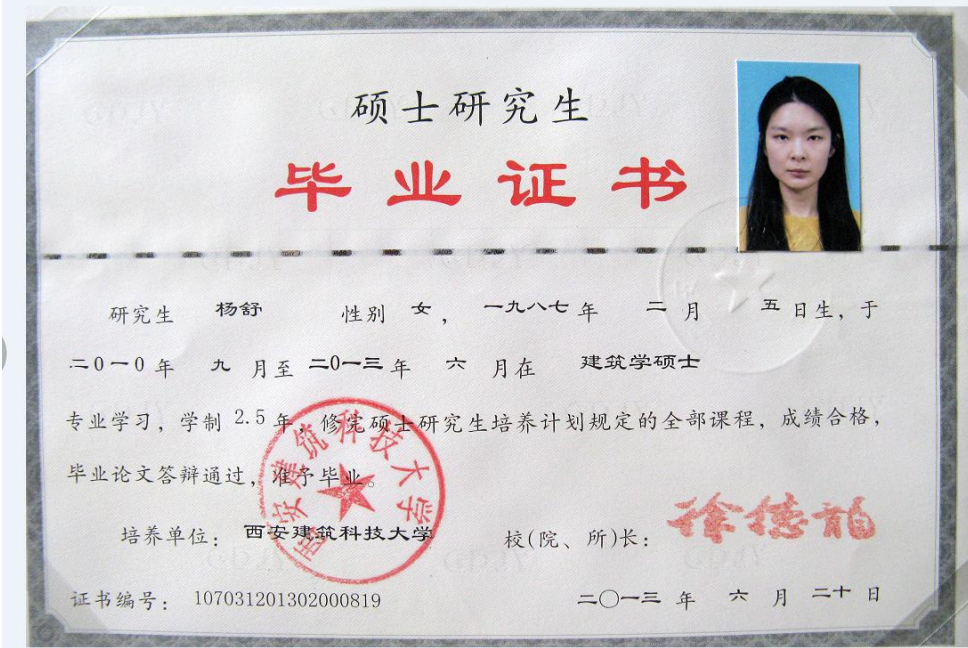 硕士研究生
毕业证书
研究生 杨舒 性别 女，一九八七年 二月 五日生，于
二〇一〇年 九月至二〇一三年 六月在 建筑学硕士
专业学习，学制 2.5 年，修完硕士研究生培养计划规定的全部课程，成绩合格，
毕业论文答辩通过，准予毕业。
西安建筑科技大学
培养单位：西安建筑科技大学 校(院、所)长：徐德龙
证书编号：107031201302000819 二〇一三年 六月 二十日